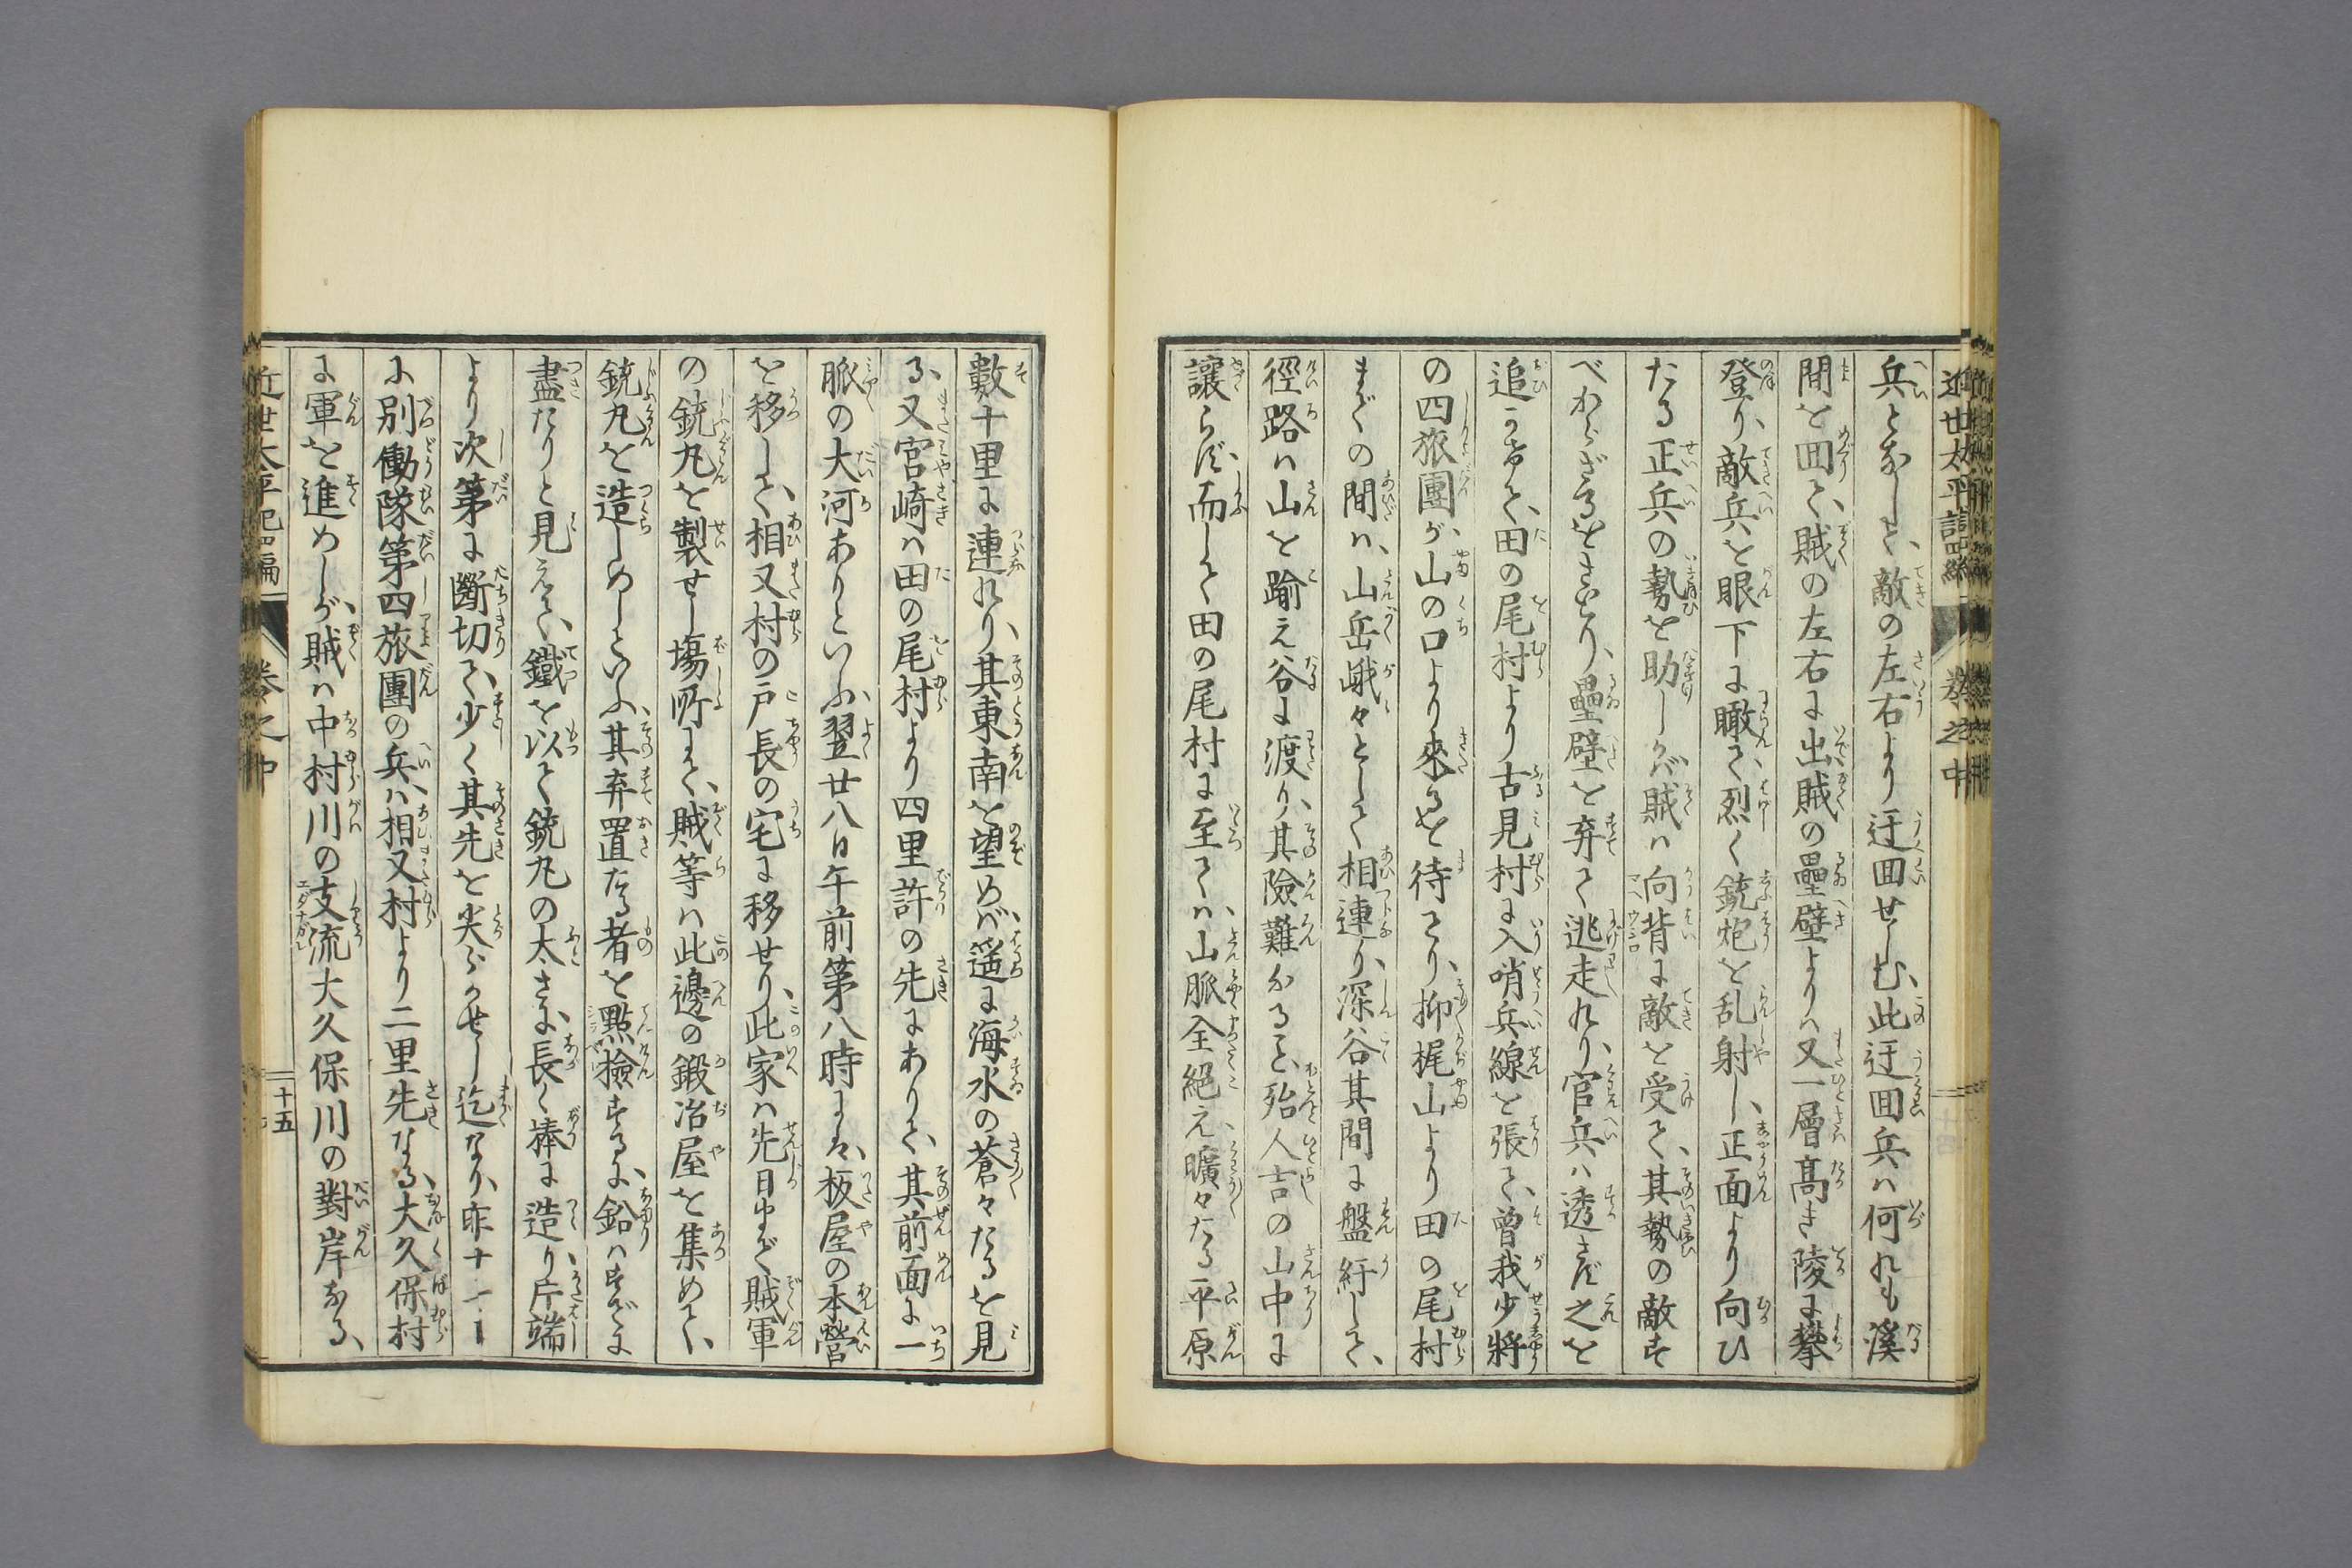 兵となして、敵の左右より迂囬せしむ、此迂囬兵ハ何れも溪
間を囬りて、賊の左右に出賊の壘壁よりハ又一層髙き陵に攀
登り、敵兵を眼下に瞰て烈く銃炮を乱射し、正面より向ひ
たる正兵の勢を助しかバ賊ハ向背に敵を受て、其勢の敵す
べからざるをさとり、壘壁を弃て逃走れり、官兵ハ透さず之を
追かけて、田の尾村より古見村に入哨兵線を張て、曽我少將
の四旅團が、山の口より來るを待てり、抑梶山より田の尾村
までの間ハ、山岳峨々として相連り、深谷其間に盤紆して、
徑路ハ山を踰え谷に渡り、其險難かること、殆人吉の山中に
讓らず、而して田の尾村に至てハ、山脈全絕え曠々たる平原
數十里に連れり、其東南を望めバ、遥に海水の蒼々たるを見
る、又宮崎ハ田の尾村より四里許の先にありて、其前面に一
脈の大河ありといふ、翌廿八日午前第八時にハ、板屋の本營
を移して、相又村の戸長の宅に移せり、此家ハ先日まで賊軍
の銃丸を製せし塲所にて、賊等ハ此邊の鍛冶屋を集めて、
銃丸を造しめしといふ、其弃置たる者を點撿するに、鉛ハすでに
盡たりと見えて、鐵を以て銃丸の太さに、長く捧に造り、片端
より次第に斷切て、少く其先を尖らかせし迄なり、昨十
に別働隊第四旅團の兵ハ、相又村より二里先なる、大久保村
に軍を進めしが、賊ハ中村川の支流大久保川の對岸なる、
近世太平記四編
卷之中
十五